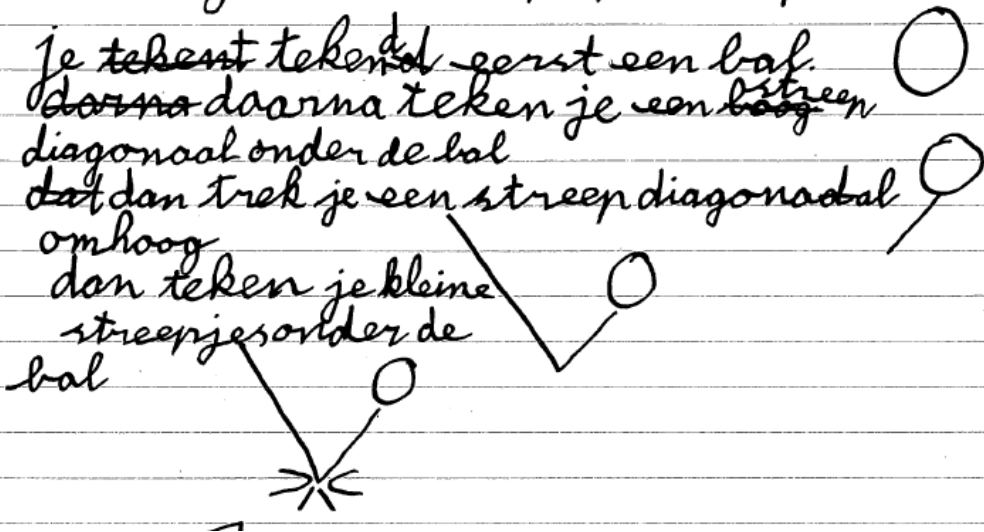 je tekent tekend eerst een bal.
darna daarna teken je een boog streep
diagonaal onder de bal
dat dan trek je een streep diagonadal
omhoog
dan teken je kleine
streepjes onder de
bal